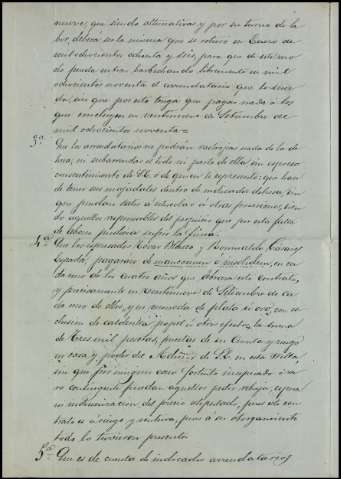 nueve, que siendo alternativas y por su turno de la
ley, deberá ser la misma que se roturó en Enero de
mil ochocientos ochenta y seis, para que de este mo
do pueda entrar barbechando libremente en mil
ochocientos noventa el arrendatario que lo suce
da, sin que por esto tenga que pagar nada á los
que concluyen en veintinueve de Setiembre de
mil ochocientos noventa=
3ª Que los arrendatarios no podrán rastrojar nada de la de
hesa, ni subarrendar el todo ni parte de ella, sin expreso
consentimiento de S.E. ó de quien le represente; que han
de tener sus majadales dentro de indicada dehesa, sin
que puedan darlos á estercolar á otras posesiones, sien
do aquellos responsables del perjuicio que por esta falta
de abono pudiera sufrir la finca.
4ª Que los expresados y Bernardo
pagarán de mancomun é insolidum, en ca
da uno de los cuatro años que abraza este contrato,
y precisamente en veintinueve de Setiembre de ca
da uno de ellos, y en moneda de plata ú oro, con es
clusion de calderilla papel ú otro efecto, la suma
de Tres mil pesetas, puestas de su cuenta y riesgo
en casa y poder del de S.E. en esta Villa,
sin que por ningun caso fortuito inesperado ó ra
ro contingente puedan aquellos pedir rebaja, espera
ni indemnizacion del precio estipulado, pues el con
trato es á riesgo y ventura, pues á su otorgamiento
todo lo tuvieron presente
5ª Que es de cuenta de indicados arrendatarios